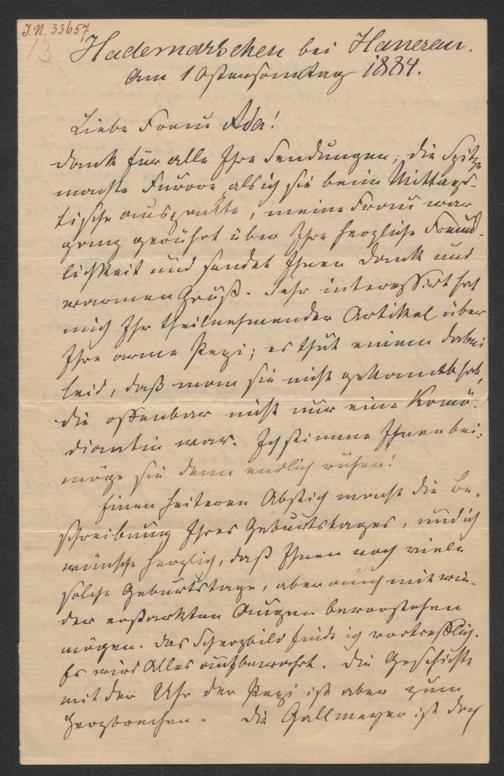 I.N. 33657
13
Hademarschen bei Hanerau.
am 1 Ostersonntag 1884.
Liebe Frau Ada!
Dank für alle Ihre Sendungen; die Spitze
machte Furore, als ich sie beim Mittags-
tische auspackte, meine Frau war
ganz gerührt über Ihre herzliche Freund-
lichkeit und sendet Ihnen Dank und
warmen Gruß. Sehr interessirt hat
mich Ihr theilnehmender Artikel über
Ihre arme Pepi; es thut einem dabei
leid, daß man sie nicht gekannt hat,
die offenbar nicht nur eine Komö-
diantin war. Ich stimme Ihnen bei:
möge sie denn endlich ruhen!
Einen heiteren Abstich macht die Be-
schreibung Ihres Geburtstages, und ich
wünsche herzlich, daß Ihnen noch viele
solche Geburtstage, aber auch mit wie-
der erstarkten Augen bevorstehen
mögen. Das Scherzbild finde ich vortrefflich.
Es wird Alles aufbewahrt. Die Geschichte
mit der Uhr der Pepi ist aber zum
Herzbrechen. Die Gallmeyer ist doch